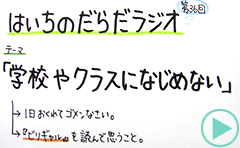 第36回
はいちのだらだラジオ
テーマ
「学校やクラスになじめない」
↳1日おくれてゴメンなさい。
↳『ビリギャル』を読んで思うこと。